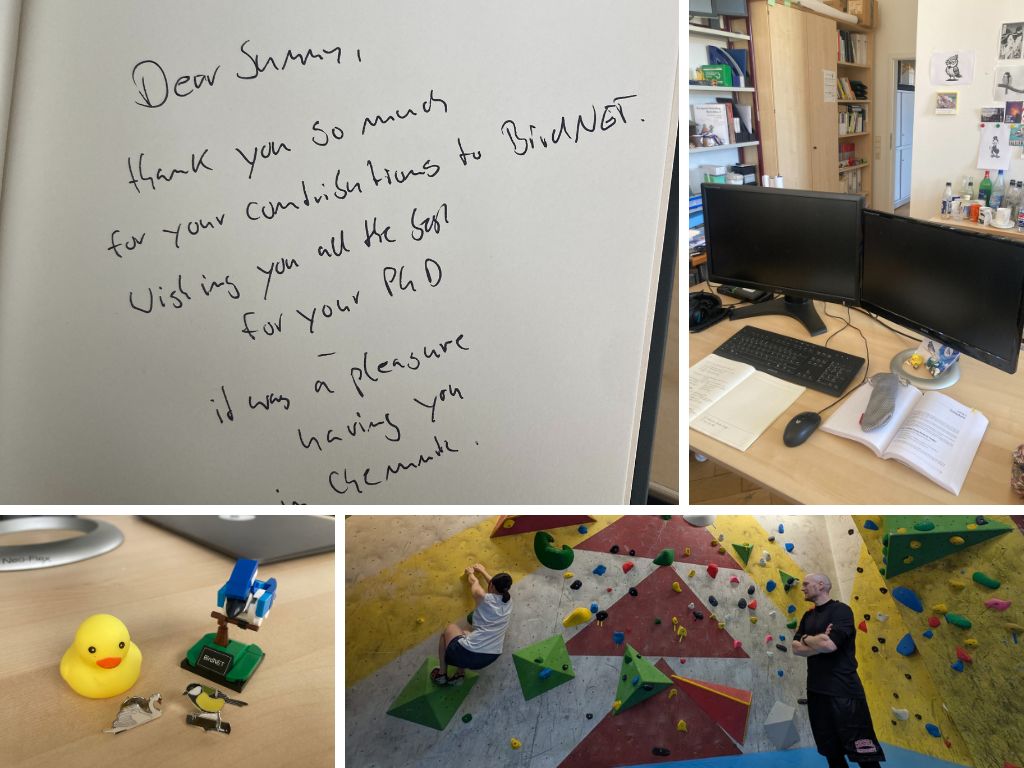 Dear Sunny,
thank you so much
for your contributions to BirdNET.
Wishing you all the best
for your PhD
–
it was a pleasure
having you
in Chemnitz.
Neo-Flex
BirdNET